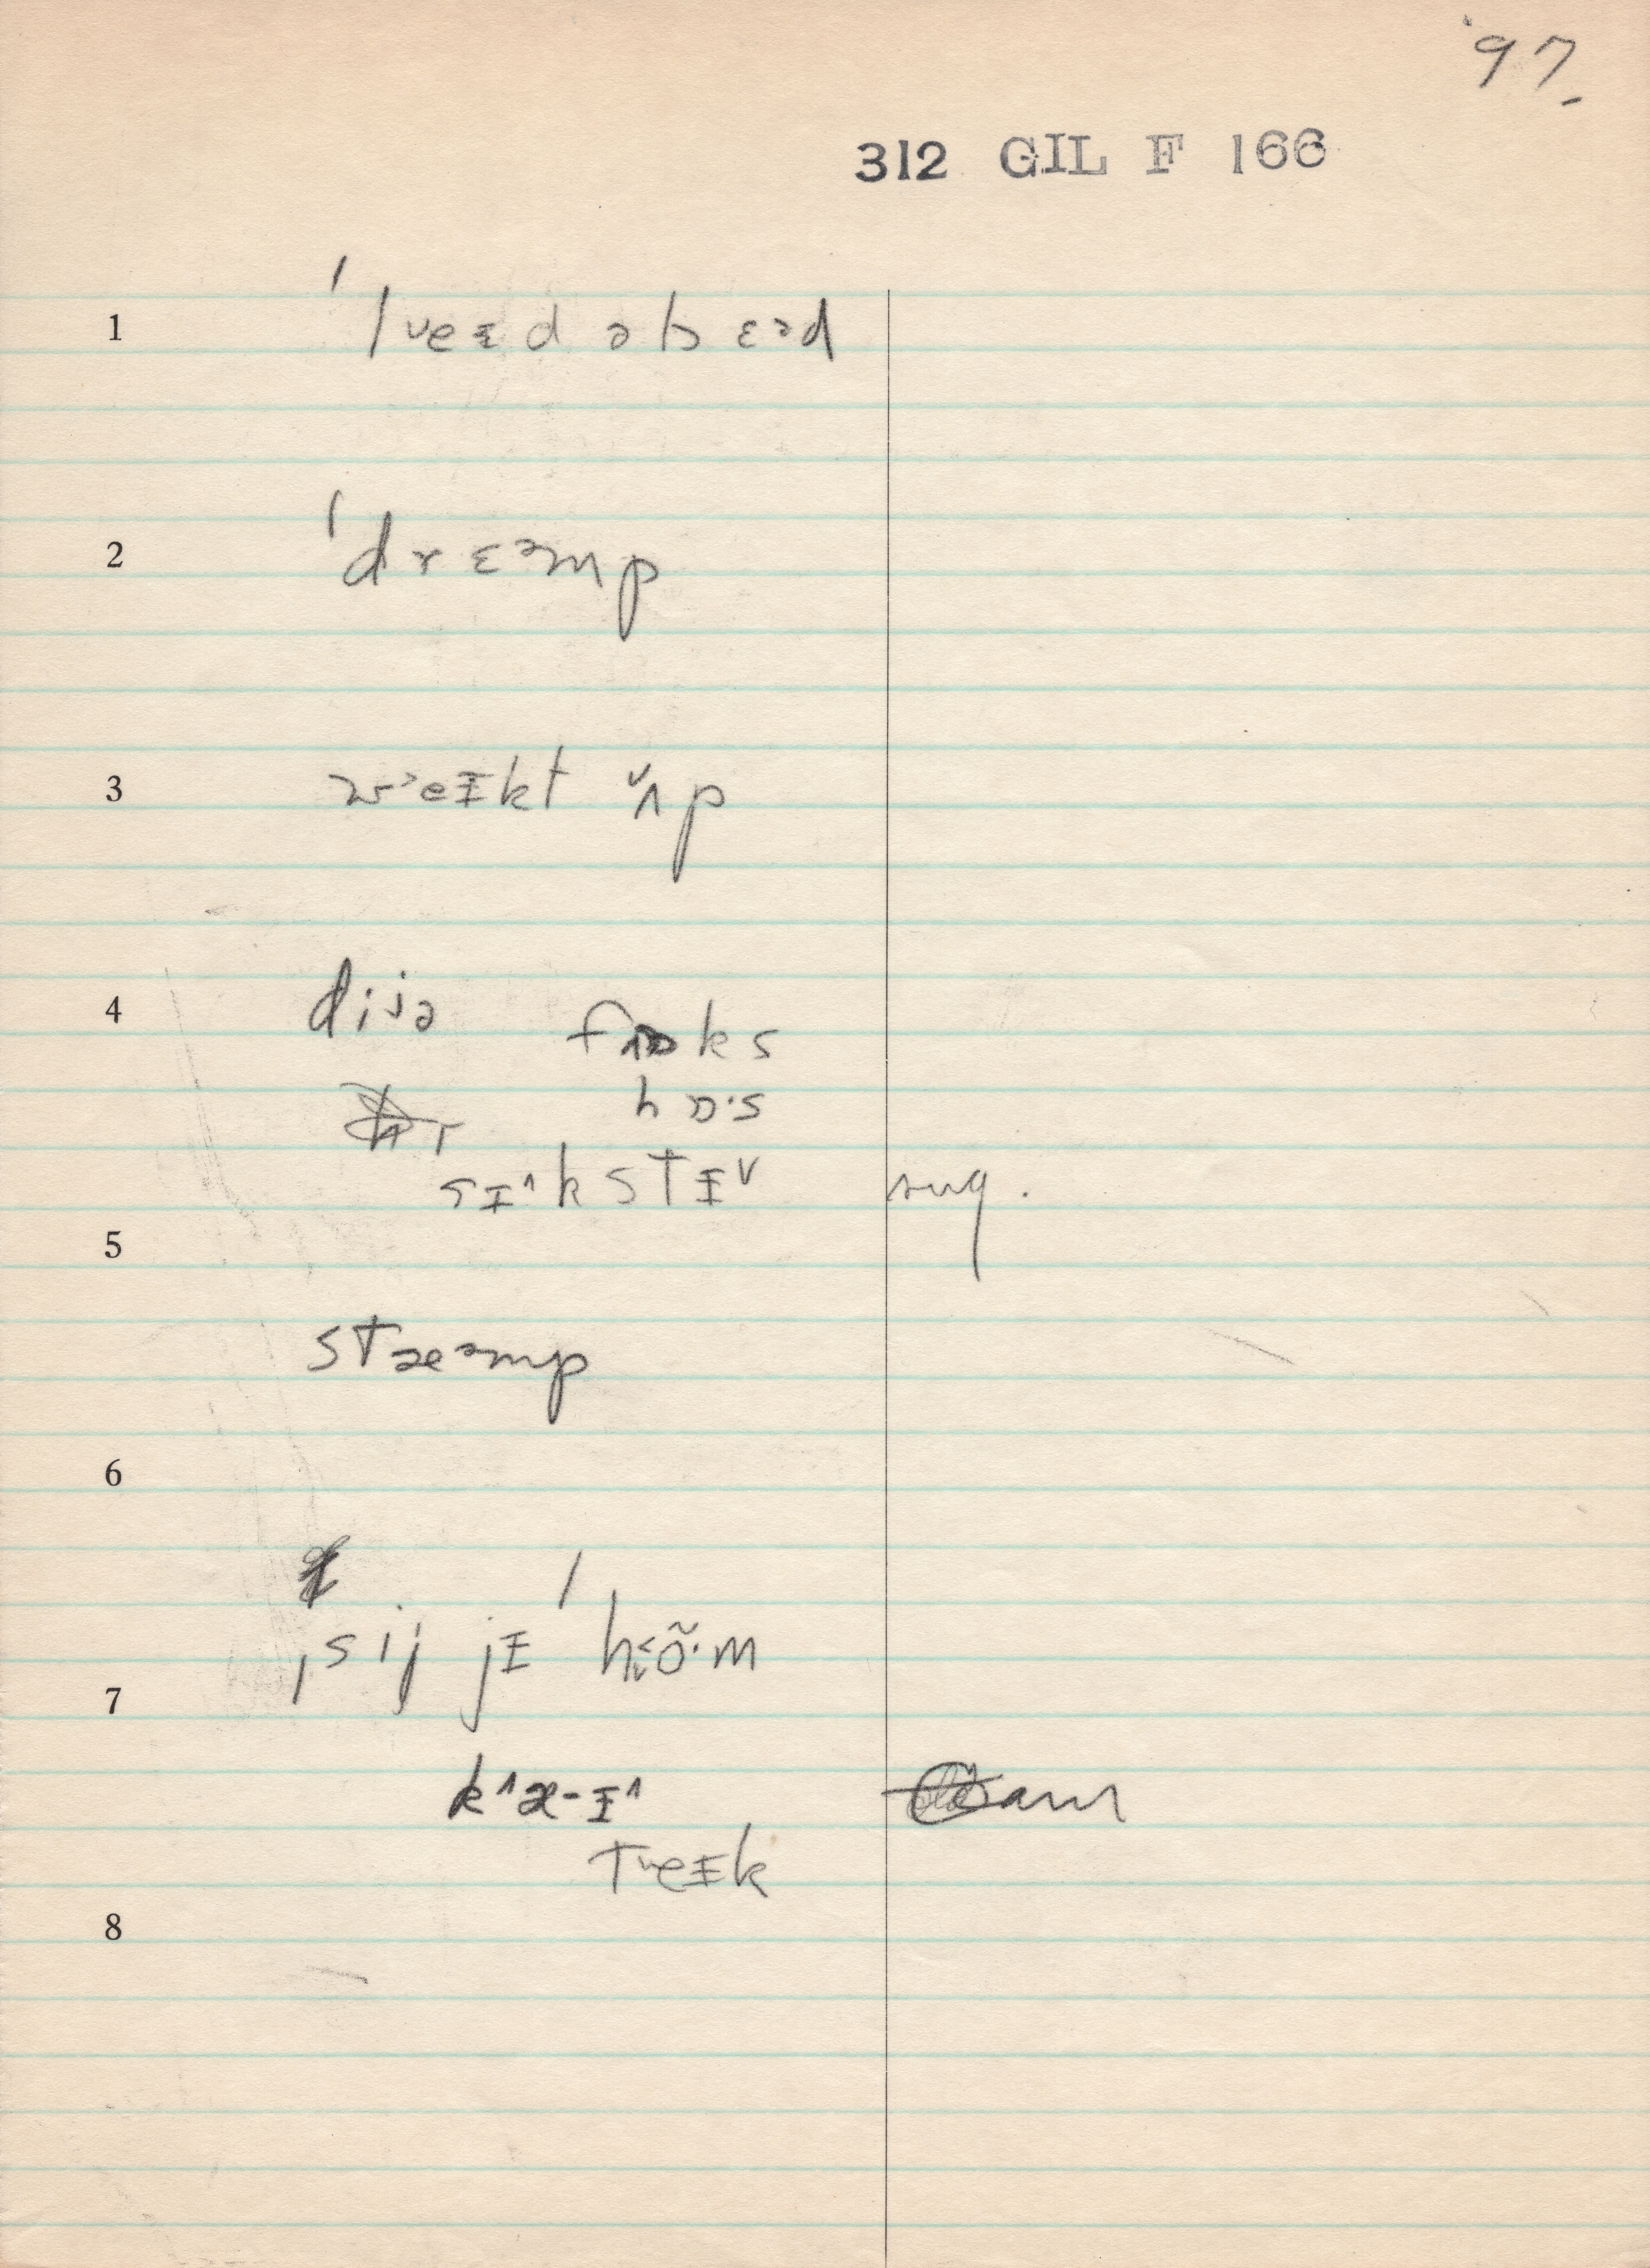 '97
312 GIL F 166
1 ˈlᵛeᵻd əb ɛəd
2 ˈdr ɛᵊmp
3 w˃eᵻkt ʌ˅p
4 dijə fɒks
hɒ·s
sᵻ˄kstᵻ˅ sug.
5
stæᵊmp
6
ˌsij jᵻ ˈh˂õ·m
7
k˄æ-ᵻ˄ am
t˅eᵻk
8